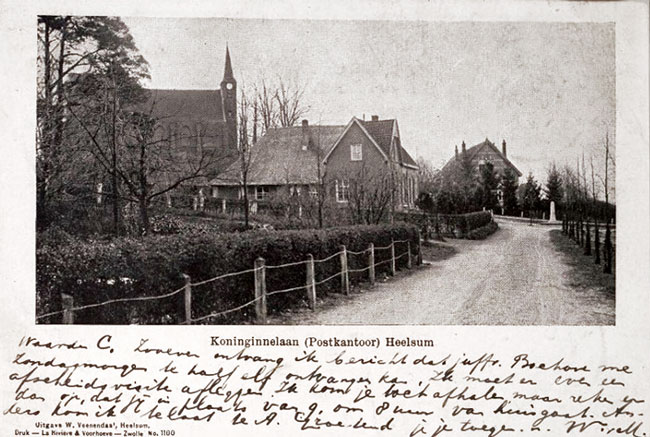 Koninginnelaan (Postkantoor) Heelsum
Waarde C. Zooeven ontvang ik bericht dat juffr. me
Zondagmorgen te half elf ontvangen kan. Ik moet er even een
afscheidsvisite afleggen. Ik kom je toch afhalen maar reken er
dan op, dat je in plaats van 9, om 8 uur, van huis gaat. An-
ders kom ik te laat te A. Groetend je je toegen.
Uitgave W. Veenendaal, Heelsum,
Druk — La Rivière & Voorhoeve — Zwolle No. 1100